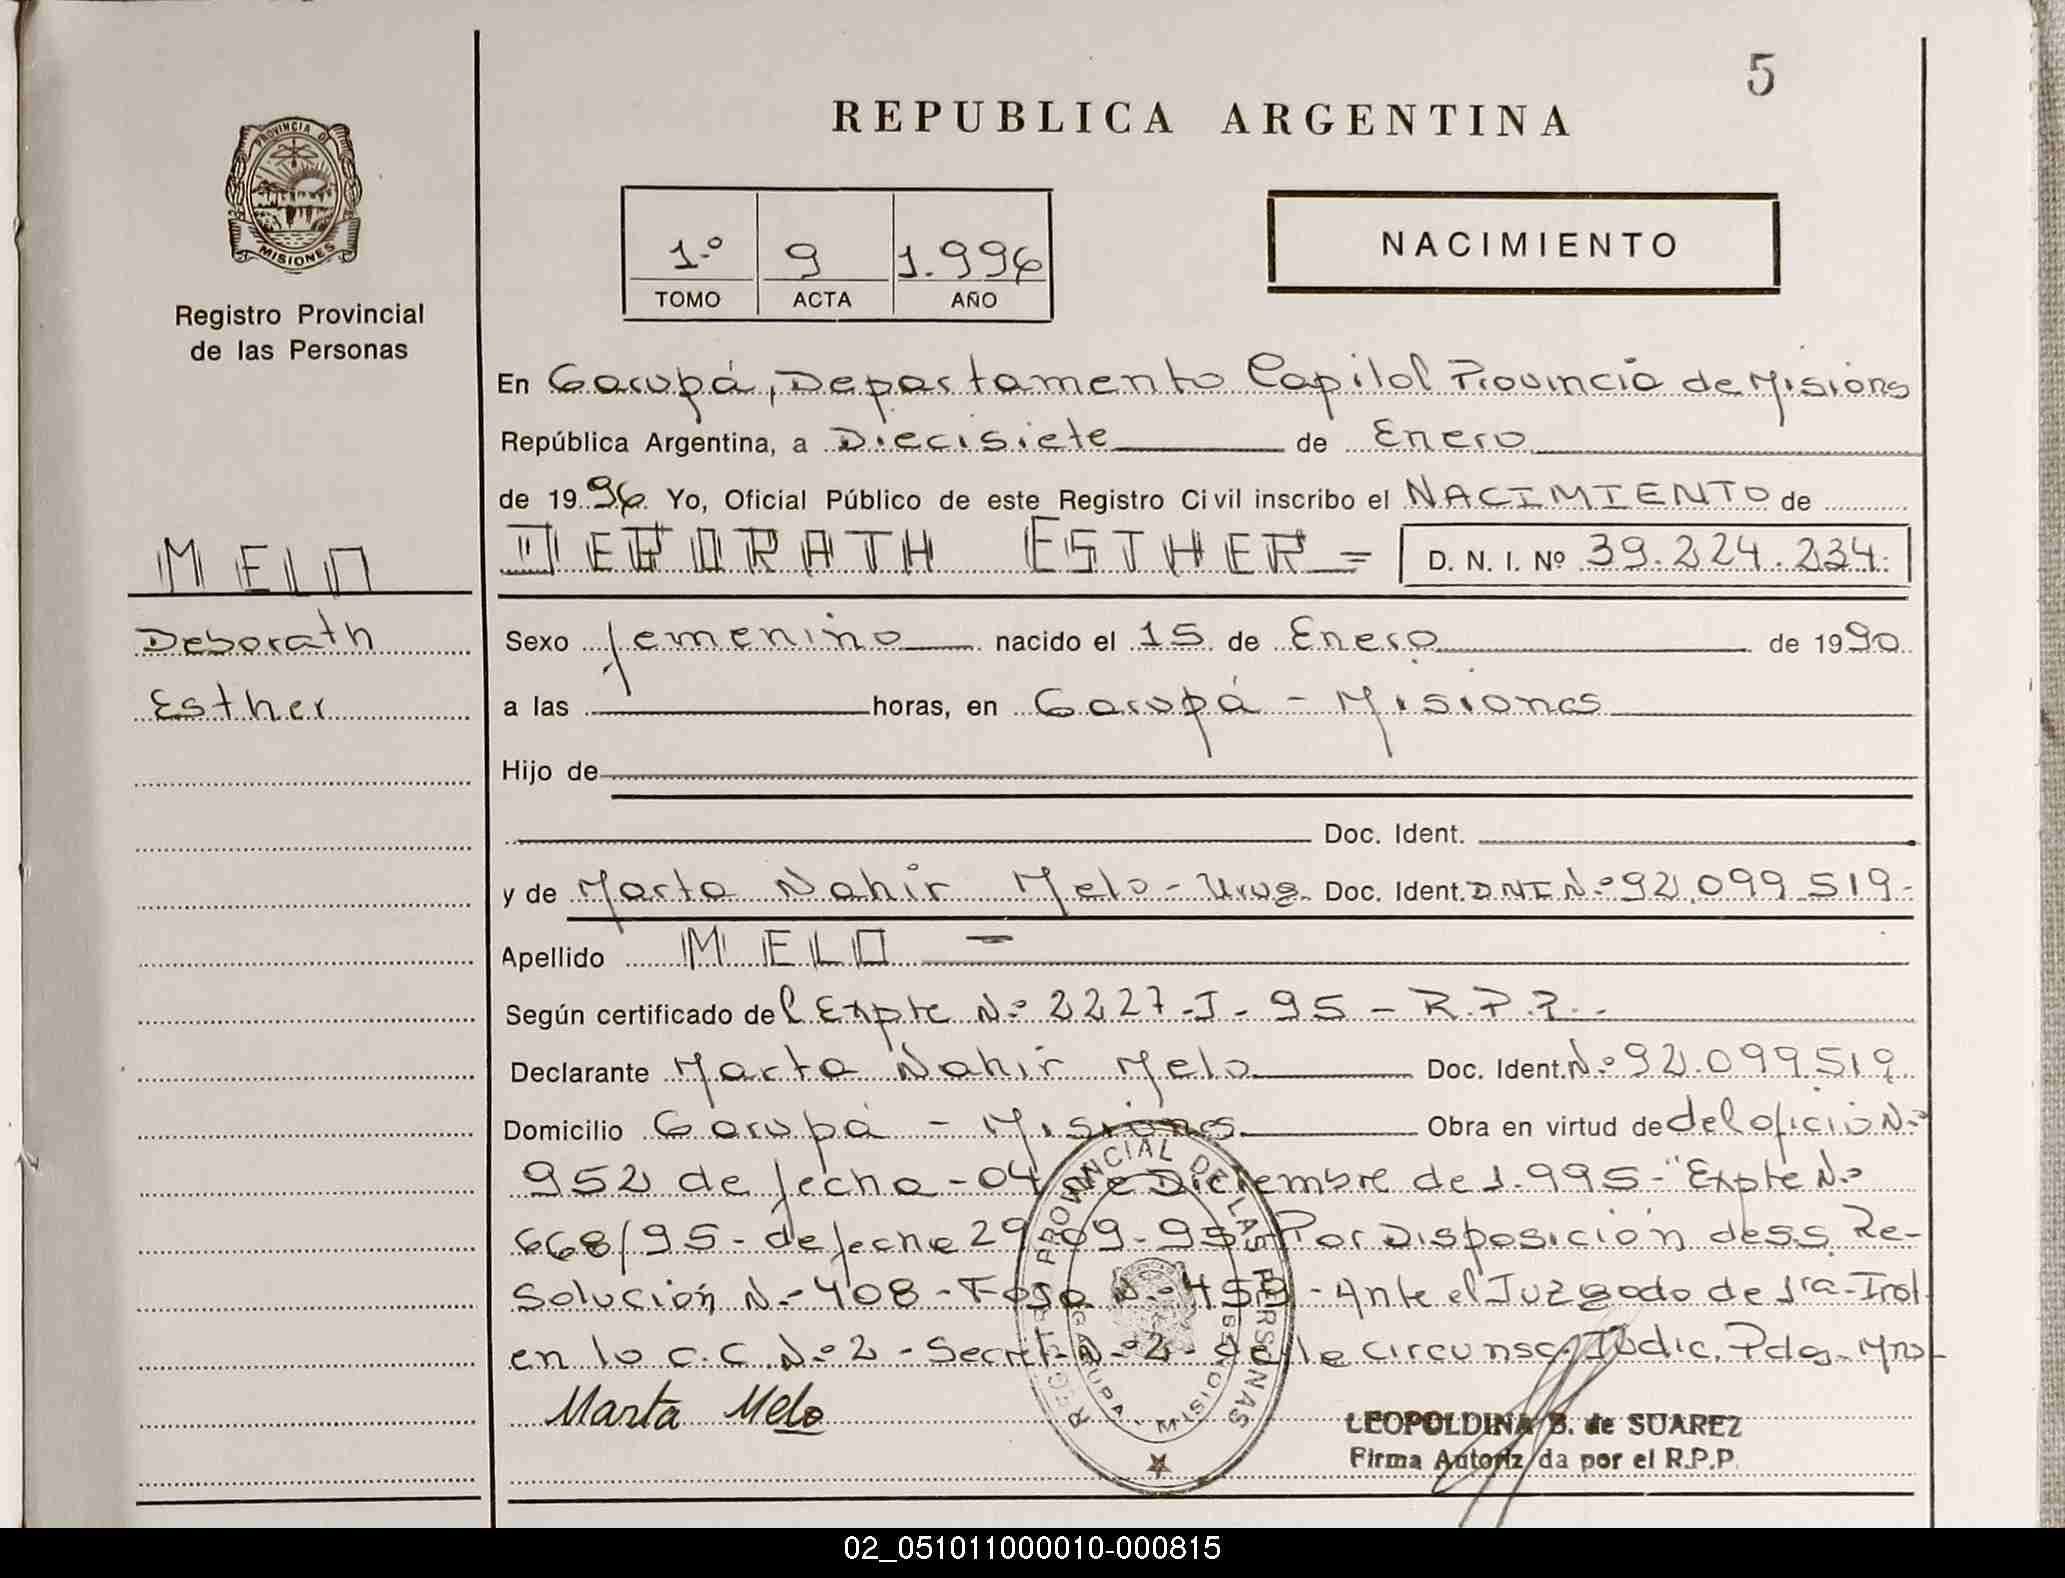 5
REPUBLICA ARGENTINA
PROVINCIA DE
MISIONES
Registro Provincial
de las Personas
1.º 9 1.996
TOMO ACTA AÑO
NACIMIENTO
En Garupá, Departamento Capital Provincia de Misiones
República Argentina, a Diecisiete de Enero
de 1996 Yo, Oficial Público de este Registro Civil inscribo el NACIMIENTO de
MELO
DEBORATH ESTHER = D. N. I. Nº 39.224.234.
Deborath
Esther
Sexo femenino nacido el 15 de Enero de 1990
a las horas, en Garupá - Misiones
Hijo de
Doc. Ident.
y de Marta Nahir Melo - Urug. Doc. Ident. DNI N.º 92.099.519.-
Apellido MELO -
Según certificado del Expte N.º 2227-J-95 - R.P.P. -
Declarante Marta Nahir Melo Doc. Ident. N.º 92.099.519
Domicilio Garupá - Misiones Obra en virtud de del oficio N.º
952 de fecha - 04 de Diciembre de 1.995 - "Expte N.º
668/95 - de fecha 29-09-95 Por Disposición de S.S. Re-
solución N.- 408 - Fosa N.- 459 - Ante el Juzgado de 1ra. Inst.
en lo C.C. N.º 2 - Secret. N.º 2 - de la circunsc. Judic. Pdas. Mnes-
Marta Melo
REGISTRO PROVINCIAL DE LAS PERSONAS
GARUPA - MISIONES
LEOPOLDINA B. de SUAREZ
Firma Autorizada por el R.P.P.
02_051011000010-000815